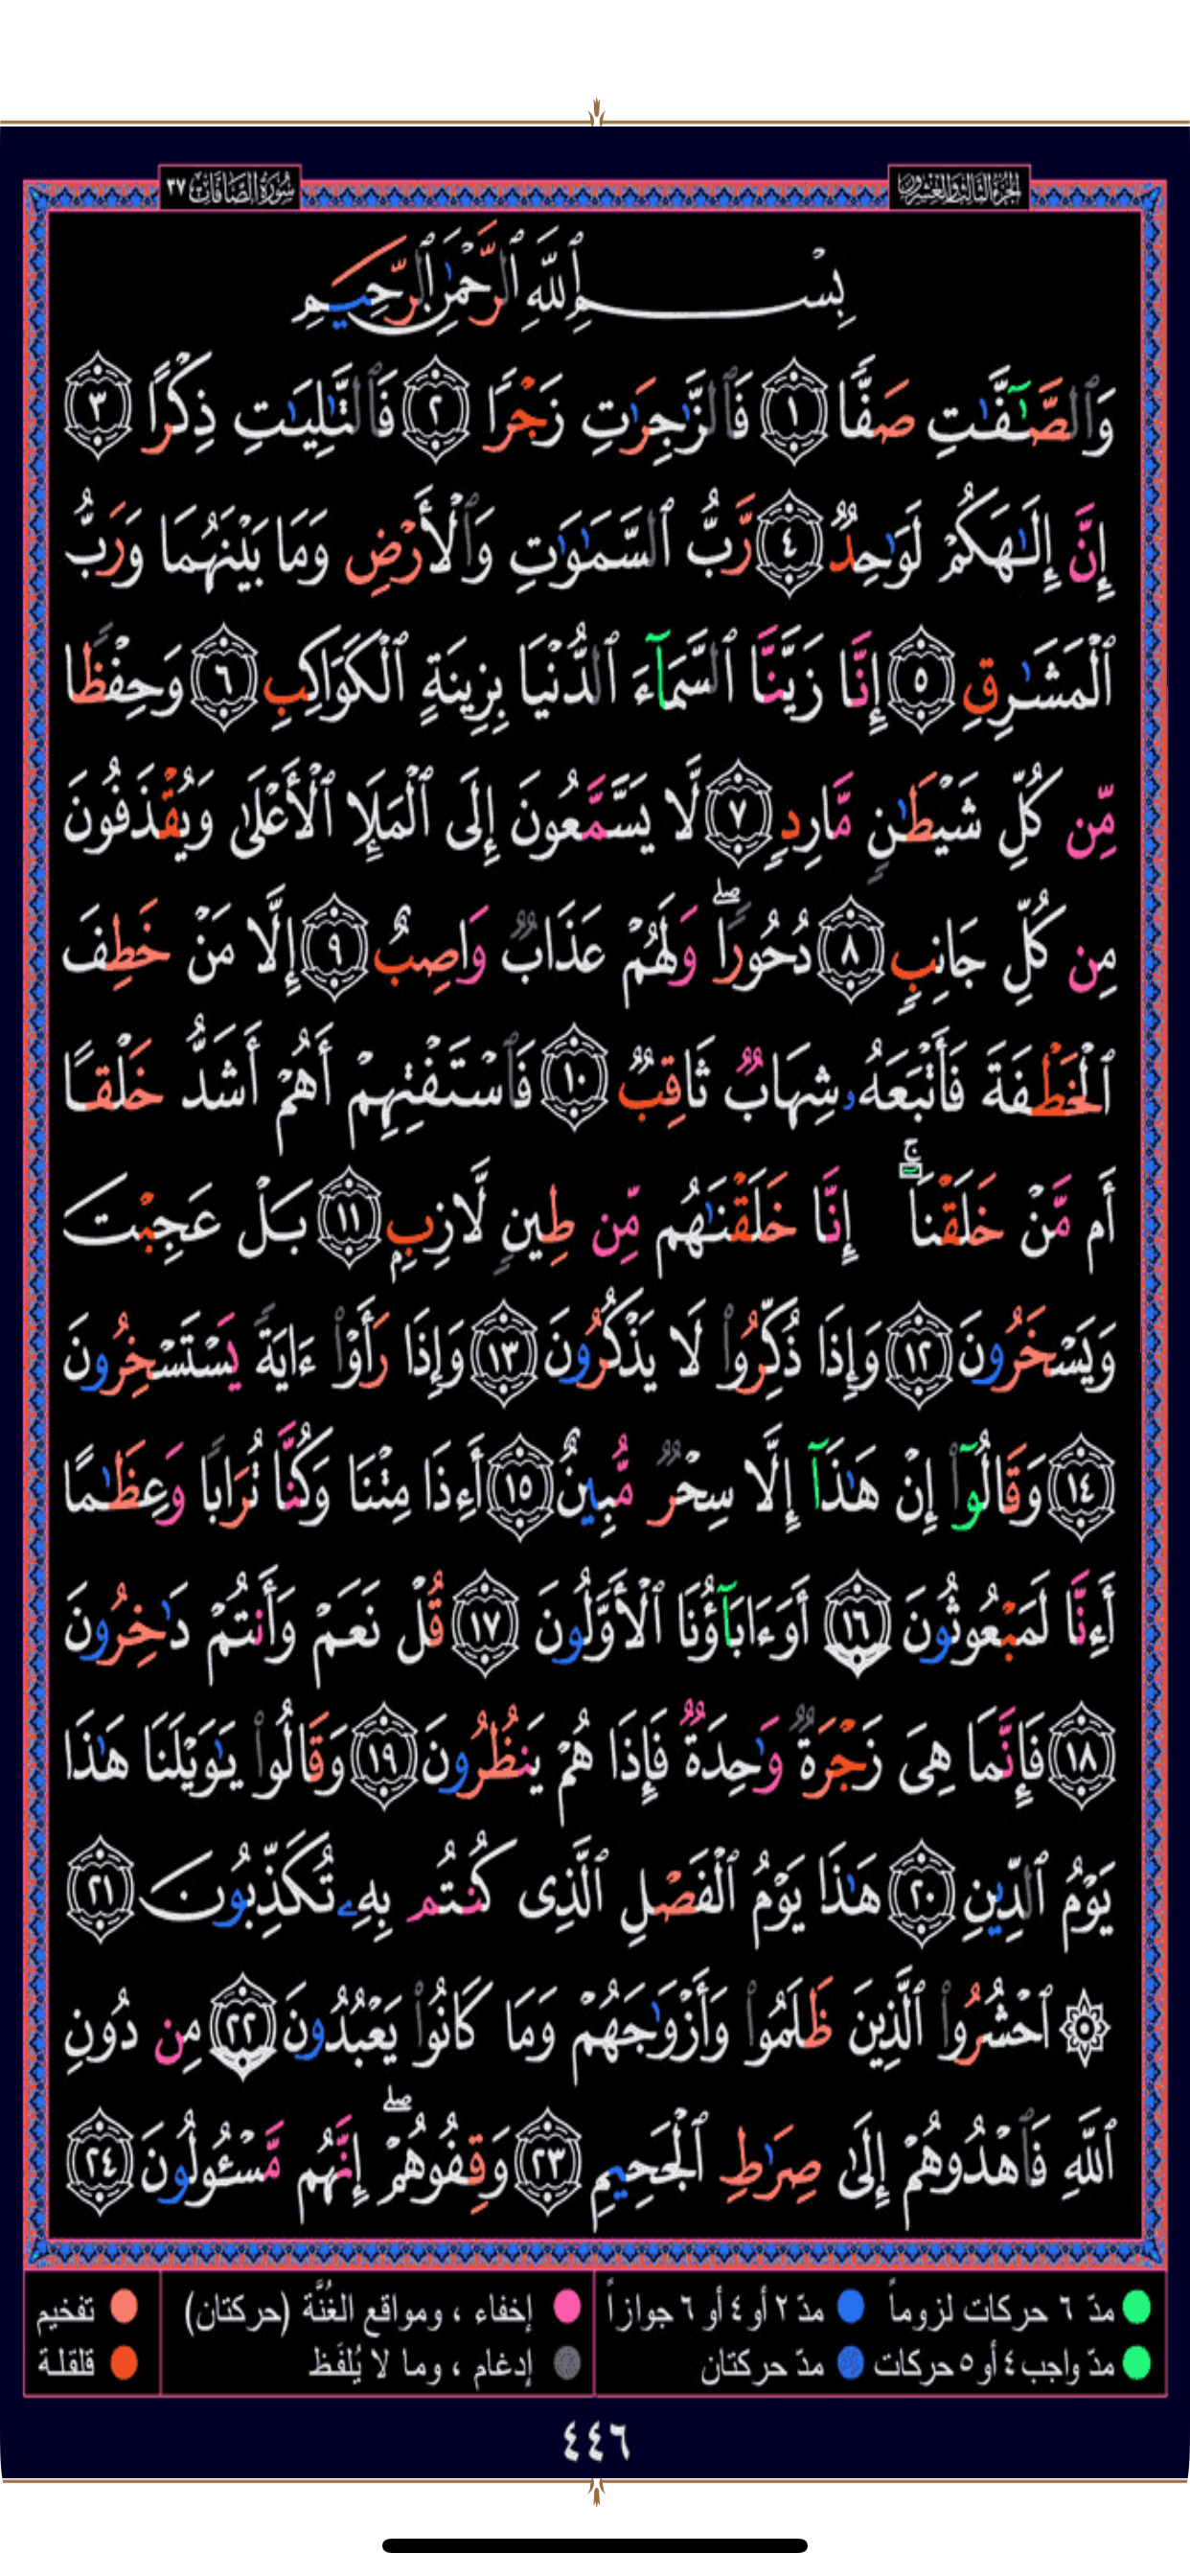 الجزء الثالث والعشرون
سورة الصافات ٣٧
بِسْمِ ٱللَّهِ ٱلرَّحْمَٰنِ ٱلرَّحِيمِ
وَٱلصَّٰٓفَّٰتِ صَفًّا ١ فَٱلزَّٰجِرَٰتِ زَجْرًا ٢ فَٱلتَّٰلِيَٰتِ ذِكْرًا ٣
إِنَّ إِلَٰهَكُمْ لَوَٰحِدٌ ٤ رَّبُّ ٱلسَّمَٰوَٰتِ وَٱلْأَرْضِ وَمَا بَيْنَهُمَا وَرَبُّ
ٱلْمَشَٰرِقِ ٥ إِنَّا زَيَّنَّا ٱلسَّمَآءَ ٱلدُّنْيَا بِزِينَةٍ ٱلْكَوَاكِبِ ٦ وَحِفْظًا
مِّن كُلِّ شَيْطَٰنٍ مَّارِدٍ ٧ لَّا يَسَّمَّعُونَ إِلَى ٱلْمَلَإِ ٱلْأَعْلَىٰ وَيُقْذَفُونَ
مِن كُلِّ جَانِبٍ ٨ دُحُورًا ۖ وَلَهُمْ عَذَابٌ وَاصِبٌ ٩ إِلَّا مَنْ خَطِفَ
ٱلْخَطْفَةَ فَأَتْبَعَهُۥ شِهَابٌ ثَاقِبٌ ١٠ فَٱسْتَفْتِهِمْ أَهُمْ أَشَدُّ خَلْقًا
أَم مَّنْ خَلَقْنَا ۚ إِنَّا خَلَقْنَٰهُم مِّن طِينٍ لَّازِبٍ ١١ بَلْ عَجِبْتَ
وَيَسْخَرُونَ ١٢ وَإِذَا ذُكِّرُوا۟ لَا يَذْكُرُونَ ١٣ وَإِذَا رَأَوْا۟ ءَايَةً يَسْتَسْخِرُونَ
١٤ وَقَالُوٓا۟ إِنْ هَٰذَآ إِلَّا سِحْرٌ مُّبِينٌ ١٥ أَءِذَا مِتْنَا وَكُنَّا تُرَابًا وَعِظَٰمًا
أَءِنَّا لَمَبْعُوثُونَ ١٦ أَوَءَابَآؤُنَا ٱلْأَوَّلُونَ ١٧ قُلْ نَعَمْ وَأَنتُمْ دَٰخِرُونَ
١٨ فَإِنَّمَا هِىَ زَجْرَةٌ وَٰحِدَةٌ فَإِذَا هُمْ يَنظُرُونَ ١٩ وَقَالُوا۟ يَٰوَيْلَنَا هَٰذَا
يَوْمُ ٱلدِّينِ ٢٠ هَٰذَا يَوْمُ ٱلْفَصْلِ ٱلَّذِى كُنتُم بِهِۦ تُكَذِّبُونَ ٢١
۞ ٱحْشُرُوا۟ ٱلَّذِينَ ظَلَمُوا۟ وَأَزْوَٰجَهُمْ وَمَا كَانُوا۟ يَعْبُدُونَ ٢٢ مِن دُونِ
ٱللَّهِ فَٱهْدُوهُمْ إِلَىٰ صِرَٰطِ ٱلْجَحِيمِ ٢٣ وَقِفُوهُمْ ۖ إِنَّهُم مَّسْـُٔولُونَ ٢٤
مدّ ٦ حركات لزوماً مدّ ٢ أو ٤ أو ٦ جوازاً إخفاء ، ومواقع الغُنَّة (حركتان) تفخيم
مدّ واجب ٤ أو ٥ حركات مدّ حركتان إدغام ، وما لا يُلفَظ قلقلة
٤٤٦